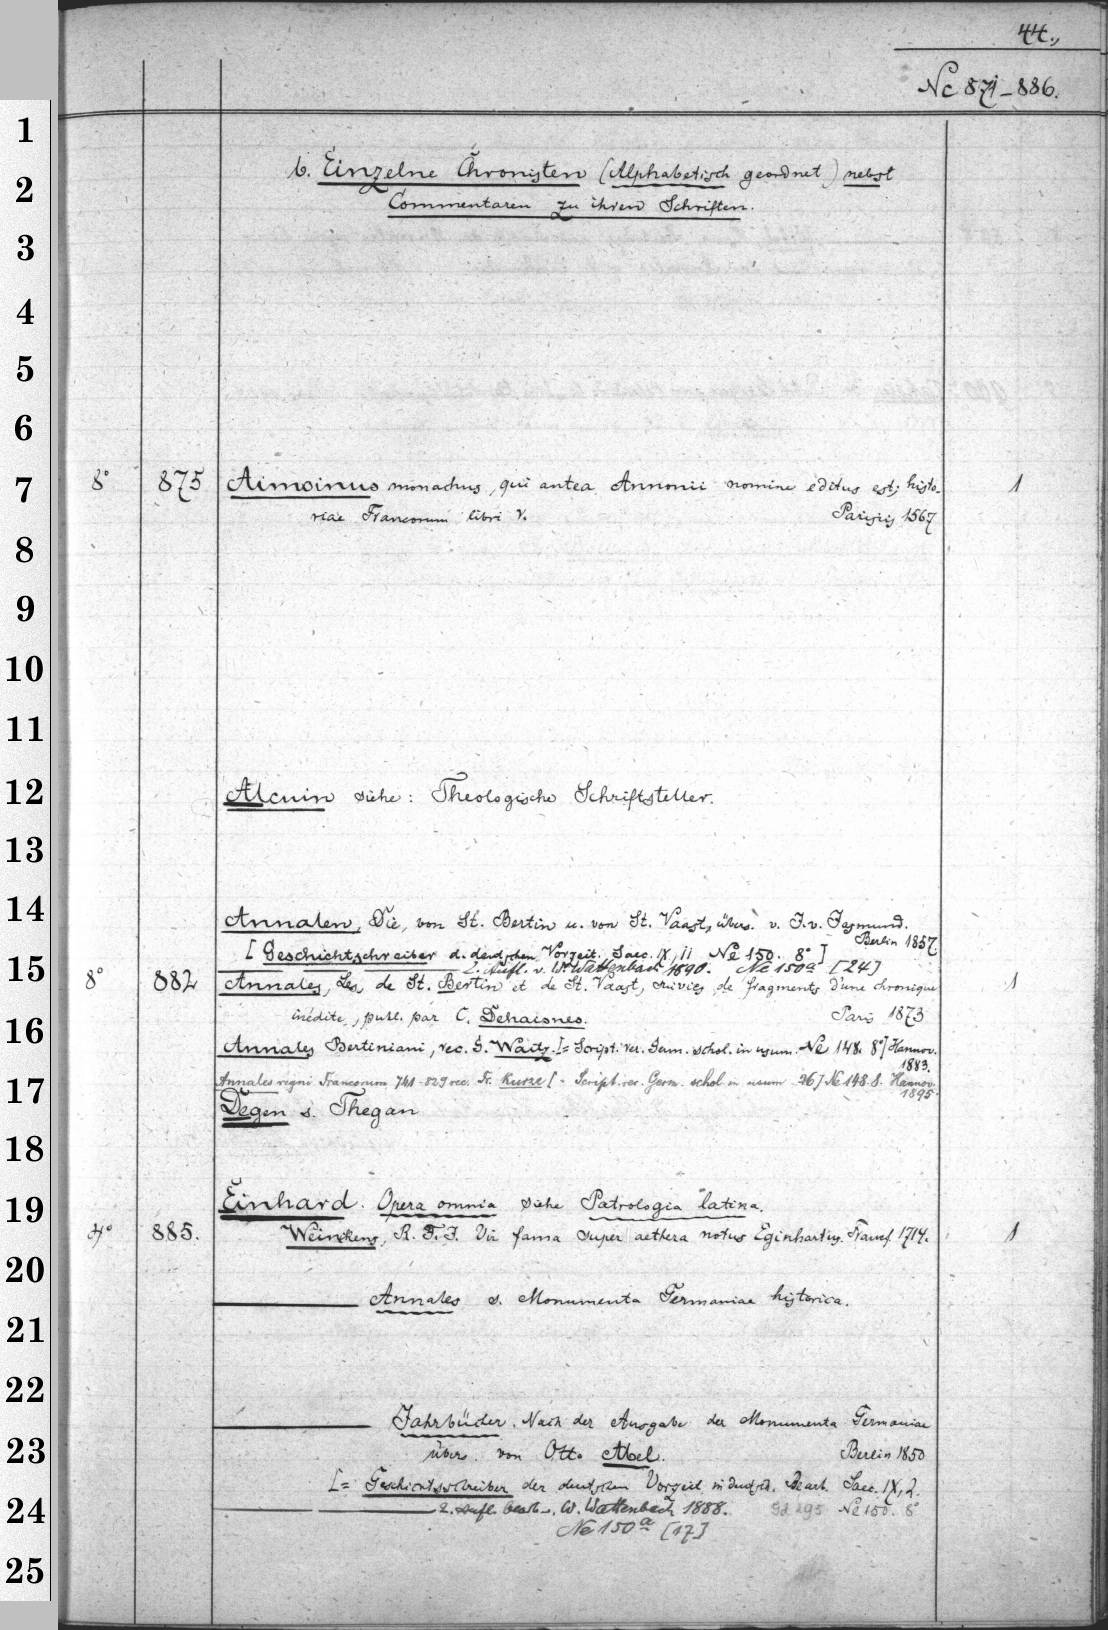 44.,
Nc 871-886.
1
b. Einzelne Chronisten (Alphabetisch geordnet) nebst
2
Commentaren zu ihren Schriften.
3
4
5
6
7
8° 875 Aimoinus monachus, qui antea Annonii nomine editus est; histo- 1
riae Francorum libri V. Parisiis 1567
8
9
10
11
12
Alcuin siehe: Theologische Schriftsteller.
13
14
Annalen, Die, von St. Bertin u. von St. Vaast, übers. v. J. v. Jasmund.
Berlin 1857.
[Geschichtschreiber d. deutschen Vorzeit. Saec. IX, 11 Nc 150. 8°]
15
2. Aufl. v. W. Wattenbach 1890. Nc 150a [24]
8° 882 Annales, Les, de St. Bertin et de St. Vaast, suivies de fragments d'une chronique 1
inédite, publ. par C. Dehaisnes. Paris 1873
16
Annales Bertiniani, rec. G. Waitz. [= Script. rer. Germ. schol. in usum. Nc 148. 8°] Hannov.
1883.
17
Annales regni Francorum 741-829 rec. Fr. Kurze [= Script. rer. Germ. schol. in usum 26] Nc 148. 8. Hannov.
1895.
Degen s. Thegan
18
19
Einhard. Opera omnia siehe Patrologia latina.
4° 885. Weinckens, R. F. J. Vir fama super aethera notus Eginhartus. Francf. 1714. 1
20
Annales s. Monumenta Germaniae historica.
21
22
Jahrbücher. Nach der Ausgabe der Monumenta Germaniae
23
übers. von Otto Abel. Berlin 1850
[= Geschichtsschreiber der deutschen Vorzeit in deutsch. Bearb. Saec. IX, 2.
24
2. Aufl. bearb. v. W. Wattenbach 1888. Nc 150. 8°
Nc 150a [17]
25